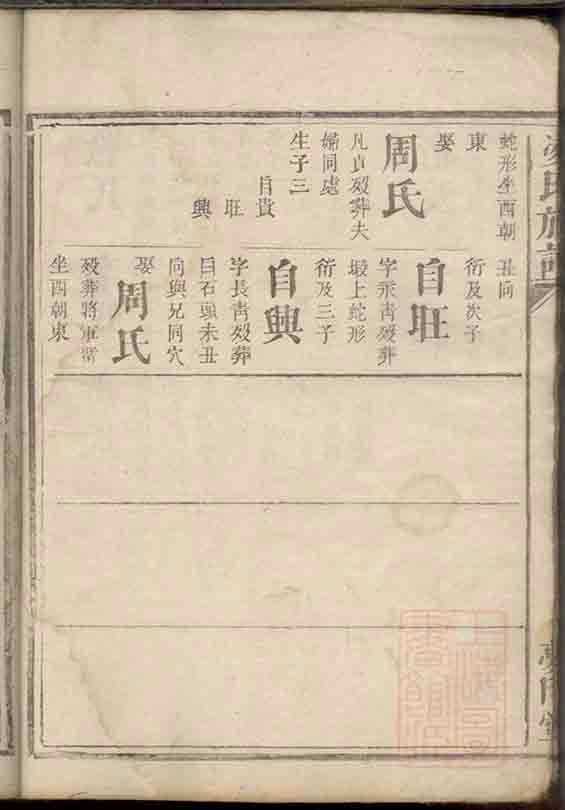 氏族譜
蛇形坐酉朝
東
娶
周氏
凡貞歿葬夫
婦同處
生子三
自貴
旺
興
丑向
衍及次子
自旺
字永靑歿葬
塅上蛇形
衍及三子
自興
字長靑歿葬
白石頭未丑
向與兄同穴
娶
周氏
歿葬將軍
坐酉朝東
上海圖書館藏